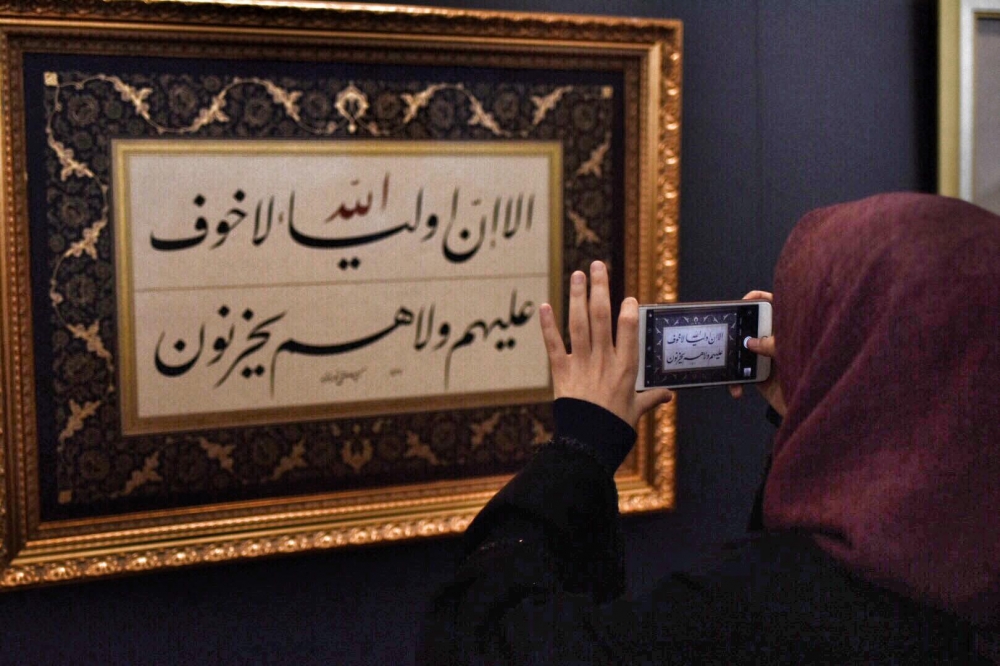 الا اِنّ اولیاء اللّه لا خوف
علیهم ولا هم یحزنون